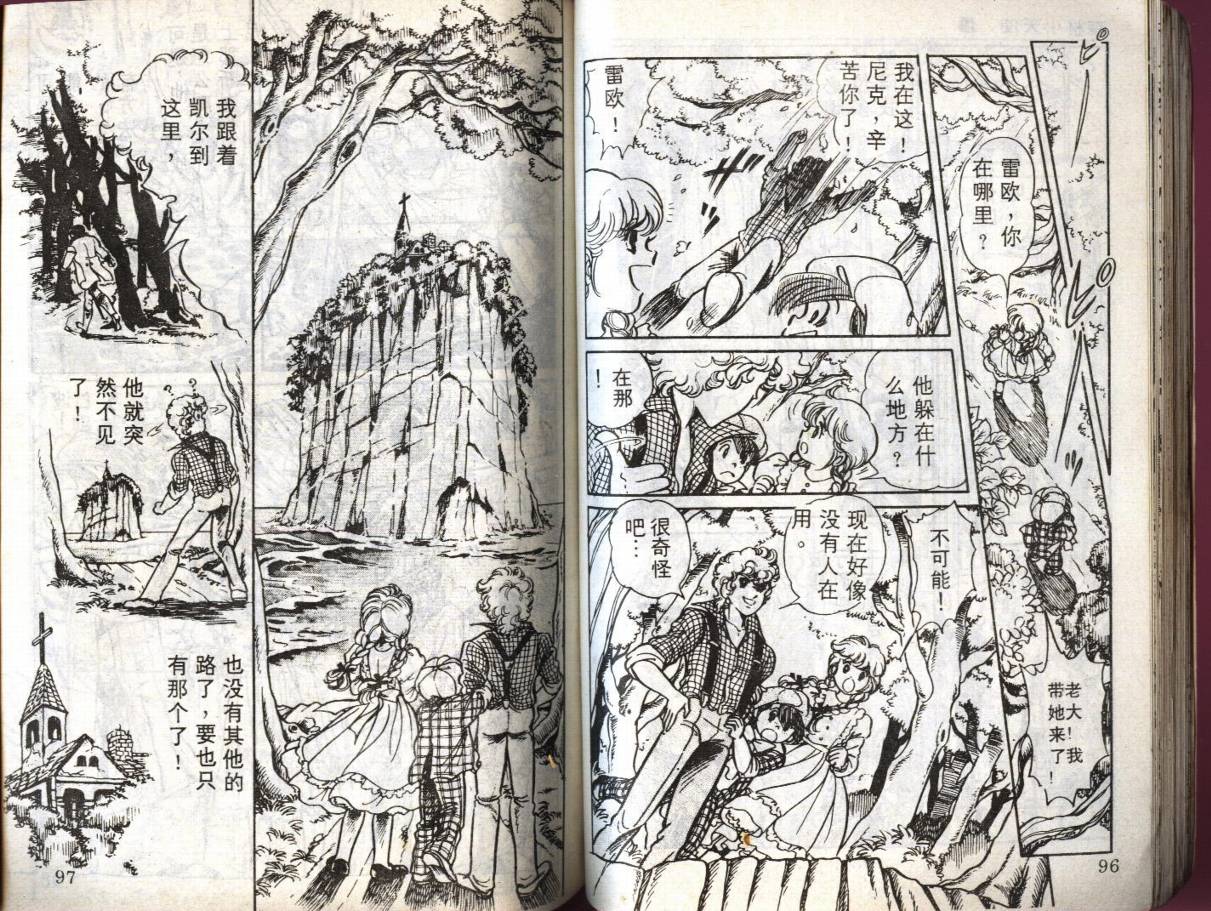 ピ
ピ
〇
雷欧，你
在哪里？
老大！我
带她来了！
我在这！
尼克，辛
苦你了！
雷欧！
他躲在什
么地方？
在那
！
不可能！
现在好像
没有人在
用。
很奇怪
吧…
96
我跟着
凯尔到
这里，
他就突
然不见
了！
？？？
也没有其他的
路了，要也只
有那个了！
97